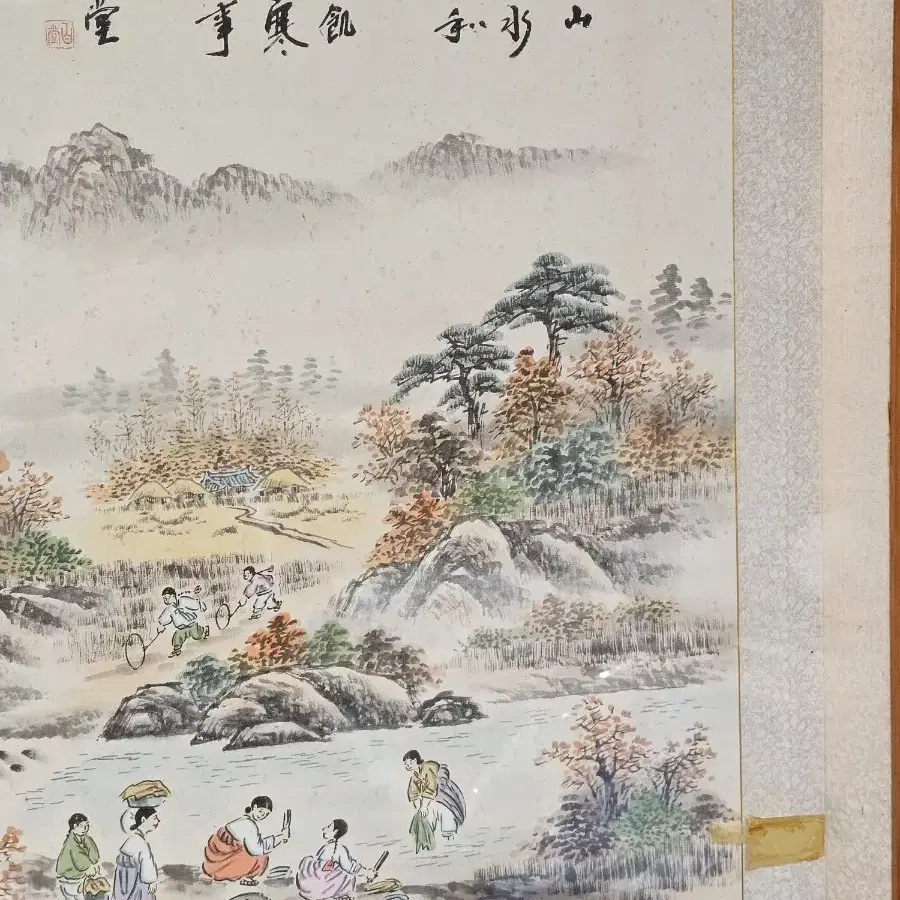 山水和飢寒事堂